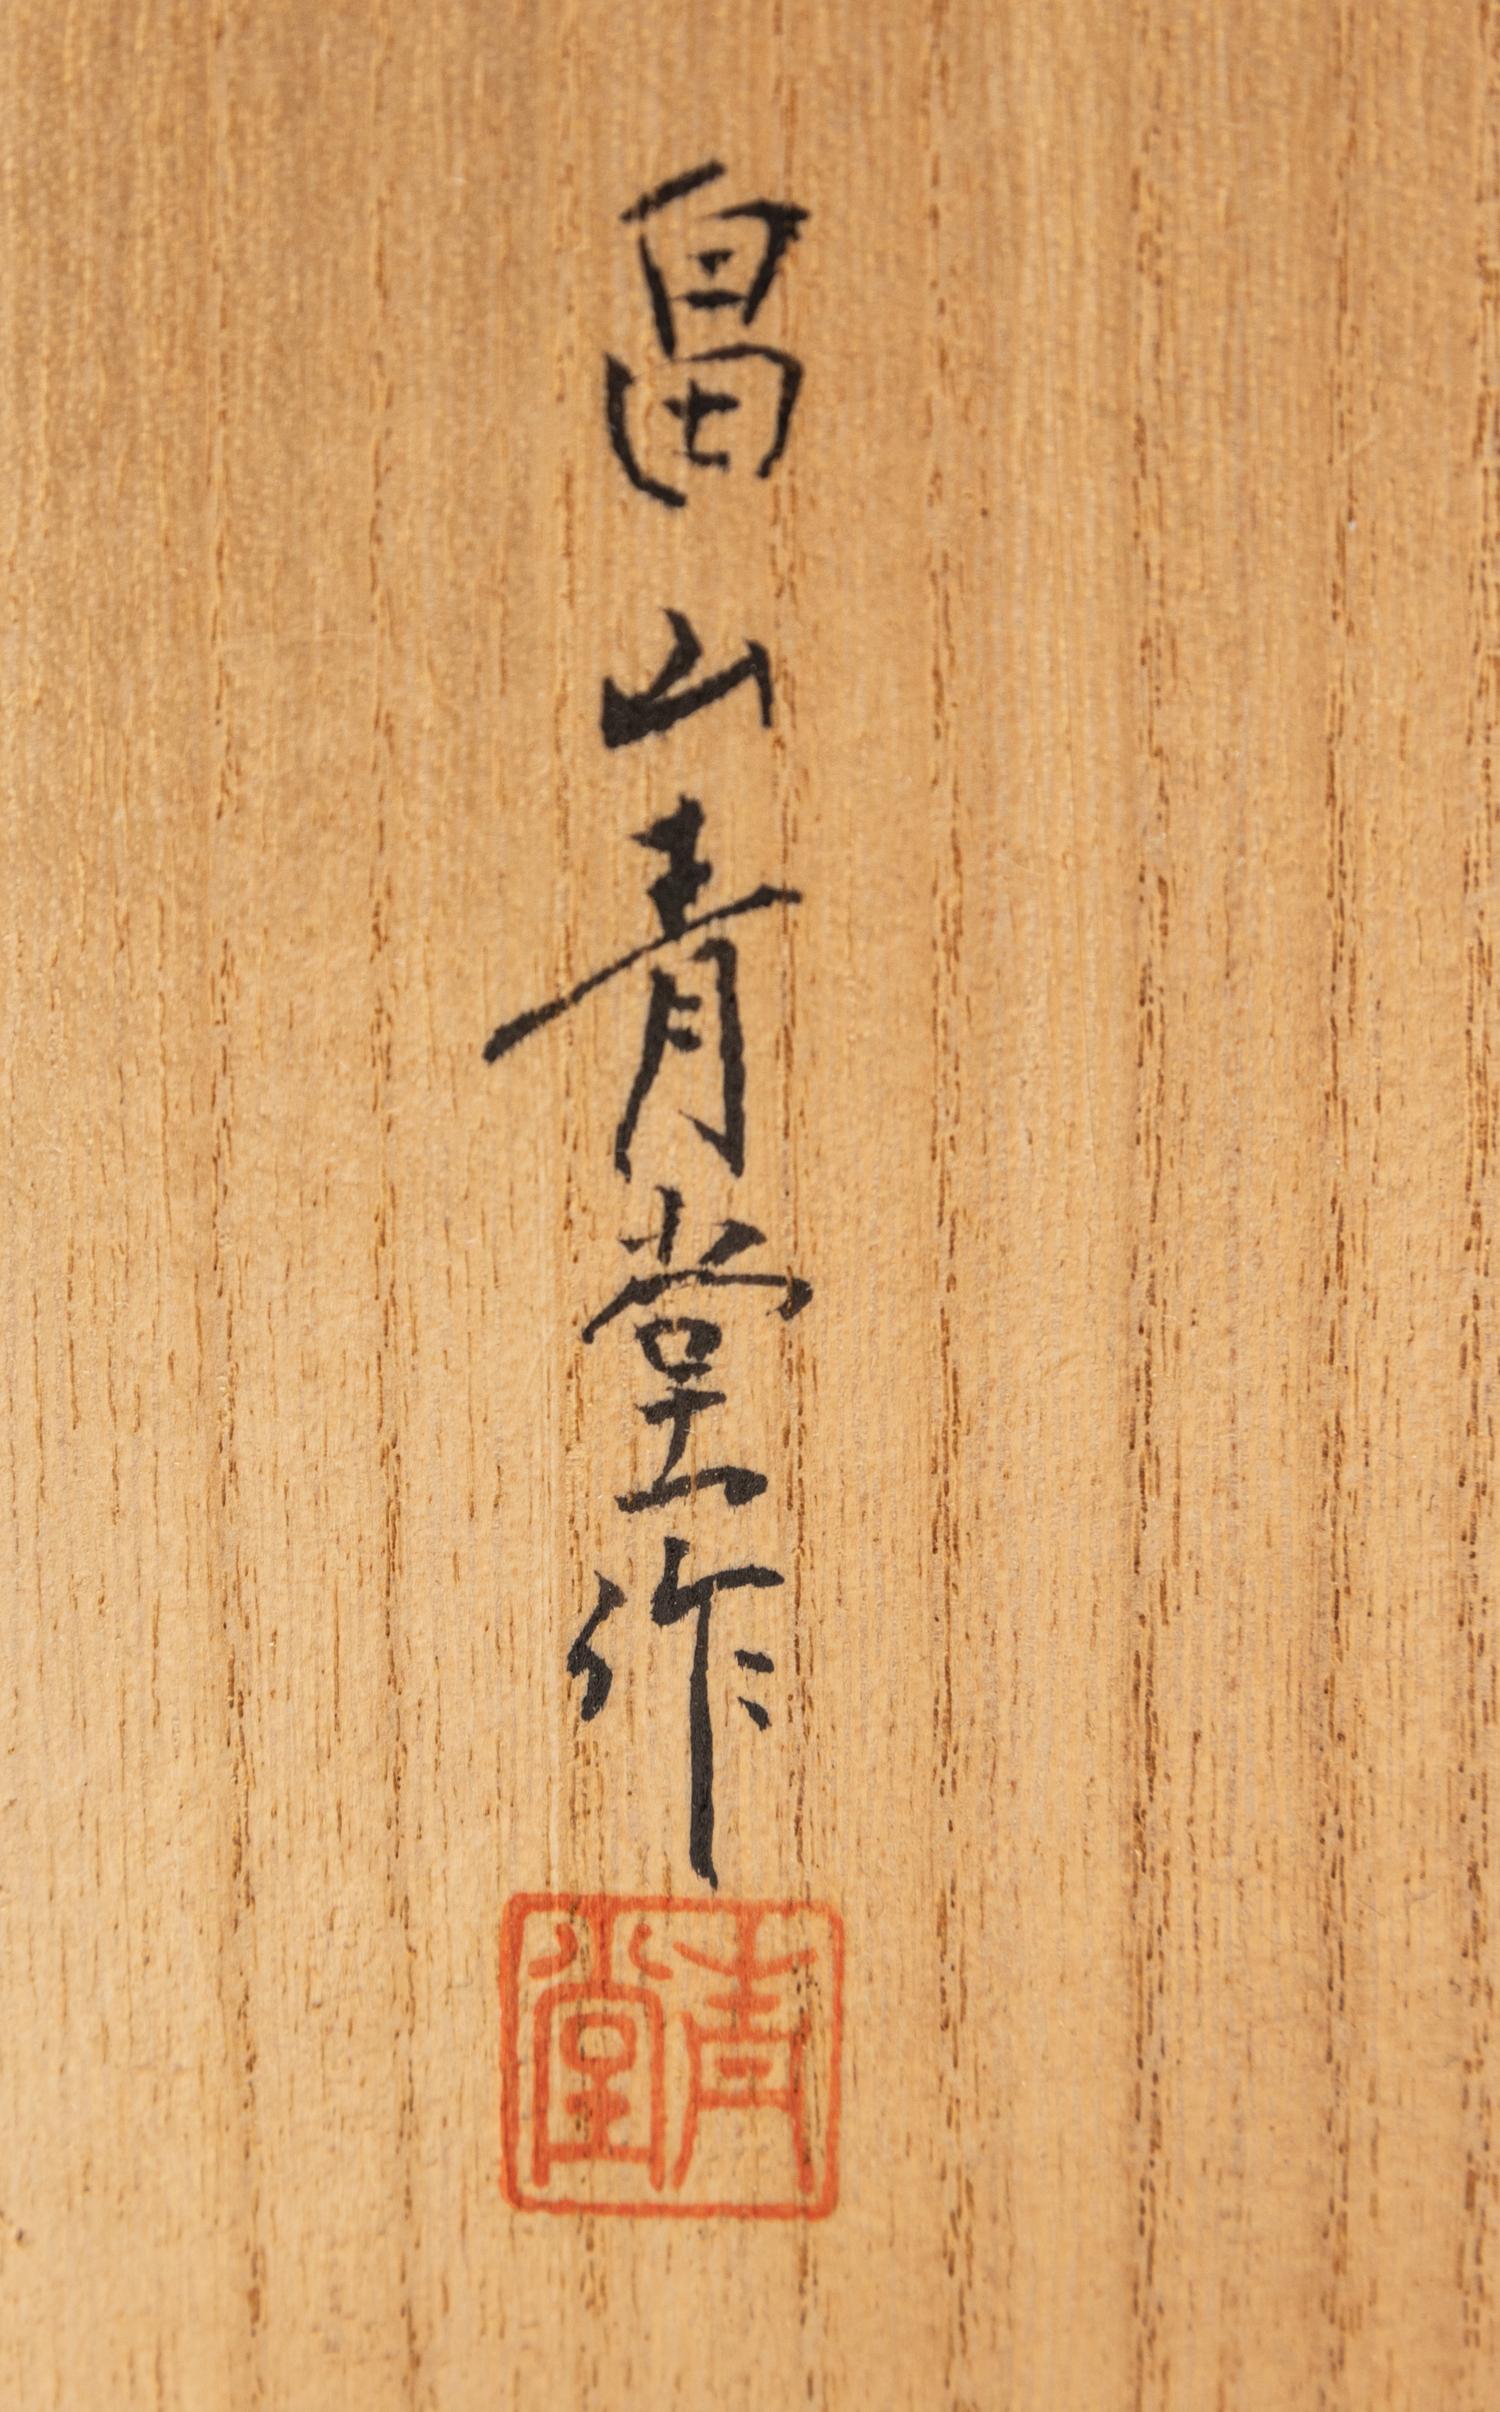 畠山青堂作
青堂